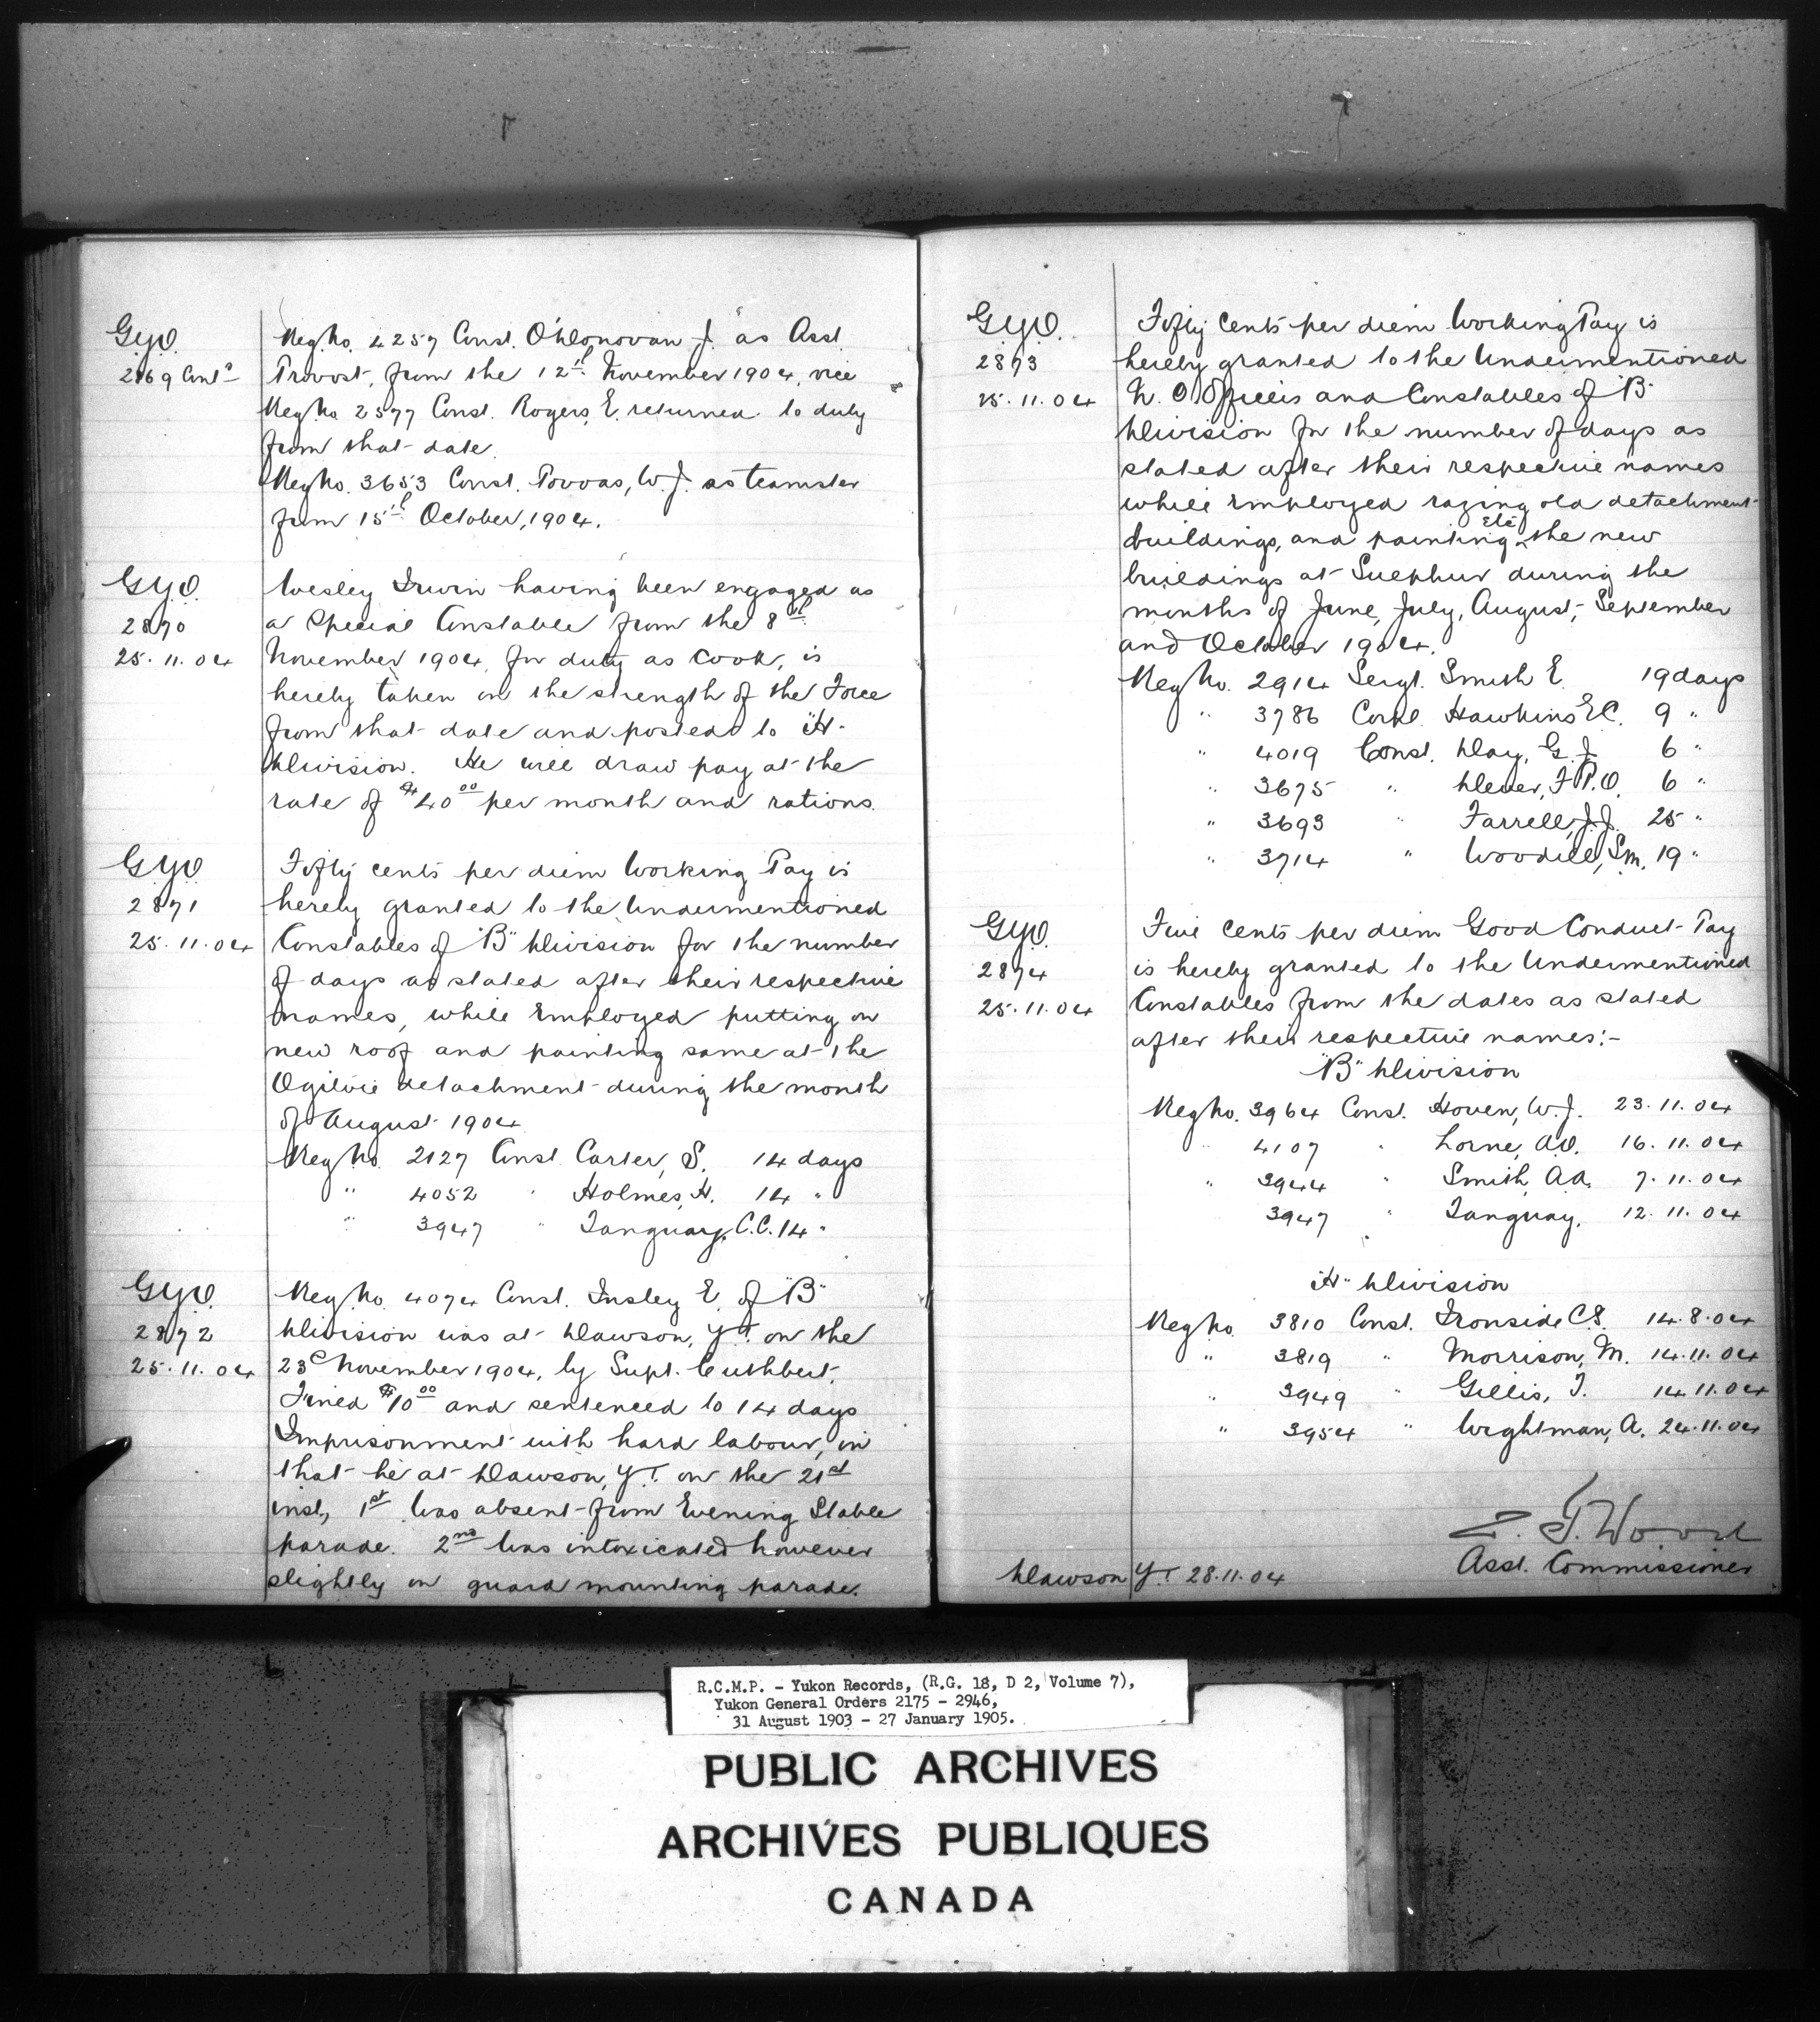 G.Y.O.
2869 Contd
Reg. No. 4257 Const. O'Donovan J. as Asst.
Provost, from the 12th November 1904, vice
Reg No 2577 Const. Rogers, E. returned to duty
from that date.
Reg No. 3653 Const. Povoas, W. J. as teamster
from 15th October, 1904.
G.Y.O.
2870
25.11.04
Wesley Irwin having been engaged as
a Special Constable from the 8th
November 1904, for duty as Cook, is
hereby taken on the strength of the Force
from that date and posted to "H"
Division. He will draw pay at the
rate of $40.00 per month and rations.
G.Y.O.
2871
25.11.04
Fifty cents per diem Working Pay is
hereby granted to the Undermentioned
Constables of "B" Division for the number
of days as stated after their respective
names, while Employed putting on
new roof and painting same at the
Ogilvie detachment during the month
of August 1904
Reg No. 2127 Const. Carter, S. 14 days
" 4052 " Holmes, H. 14 "
" 3947 " Tanguay, C.C. 14 "
G.Y.O.
2872
25.11.04
Reg. No. 4074 Const. Insley E. of "B"
Division was at Dawson, Y.T. on the
23d November 1904, by Supt. Cuthbert,
Fined $10.00 and sentenced to 14 days
Imprisonment with hard labour, in
that he at Dawson, Y.T. on the 21st
inst, 1st Was absent from Evening Stable
parade. 2nd Was intoxicated however
slightly on guard mounting parade.
G.Y.O.
2873
25.11.04
Fifty Cents per diem Working Pay is
hereby granted to the Undermentioned
N. C. Officers and Constables of "B"
Division for the number of days as
stated after their respective names
while Employed razing old detachment
buildings, and painting etc the new
buildings at Sulphur during the
months of June, July, August, September
and October 1904.
Reg No. 2914 Sergt. Smith E. 19 days
" 3786 Corpl. Hawkins E C. 9 "
" 4019 Const. Day, G. J. 6 "
" 3675 " Dever, F P.O. 6 "
" 3693 " Farrell, J. J. 25 "
" 3714 " Woodill, S m. 19 "
G.Y.O.
2874
25.11.04
Five cents per diem Good Conduct Pay
is hereby granted to the Undermentioned
Constables from the dates as stated
after their respective names:-
"B" Division
Reg No. 3964 Const. Hoven, W. J. 23.11.04
" 4107 " Lorne, A.O. 16.11.04
" 3944 " Smith, A.A. 7.11.04
3947 " Tanguay, 12.11.04
"H" Division
Reg No. 3810 Const. Ironside C S. 14.8.04
" 3819 " Morrison, M. 14.11.04
" 3949 " Gillis, T. 14.11.04
" 3954 " Wightman, A. 24.11.04
Z. T. Wood
Asst. Commissioner
Dawson Y.T. 28.11.04
R.C.M.P. - Yukon Records, (R.G. 18, D 2, Volume 7),
Yukon General Orders 2175 - 2946,
31 August 1903 - 27 January 1905.
PUBLIC ARCHIVES
ARCHIVES PUBLIQUES
CANADA